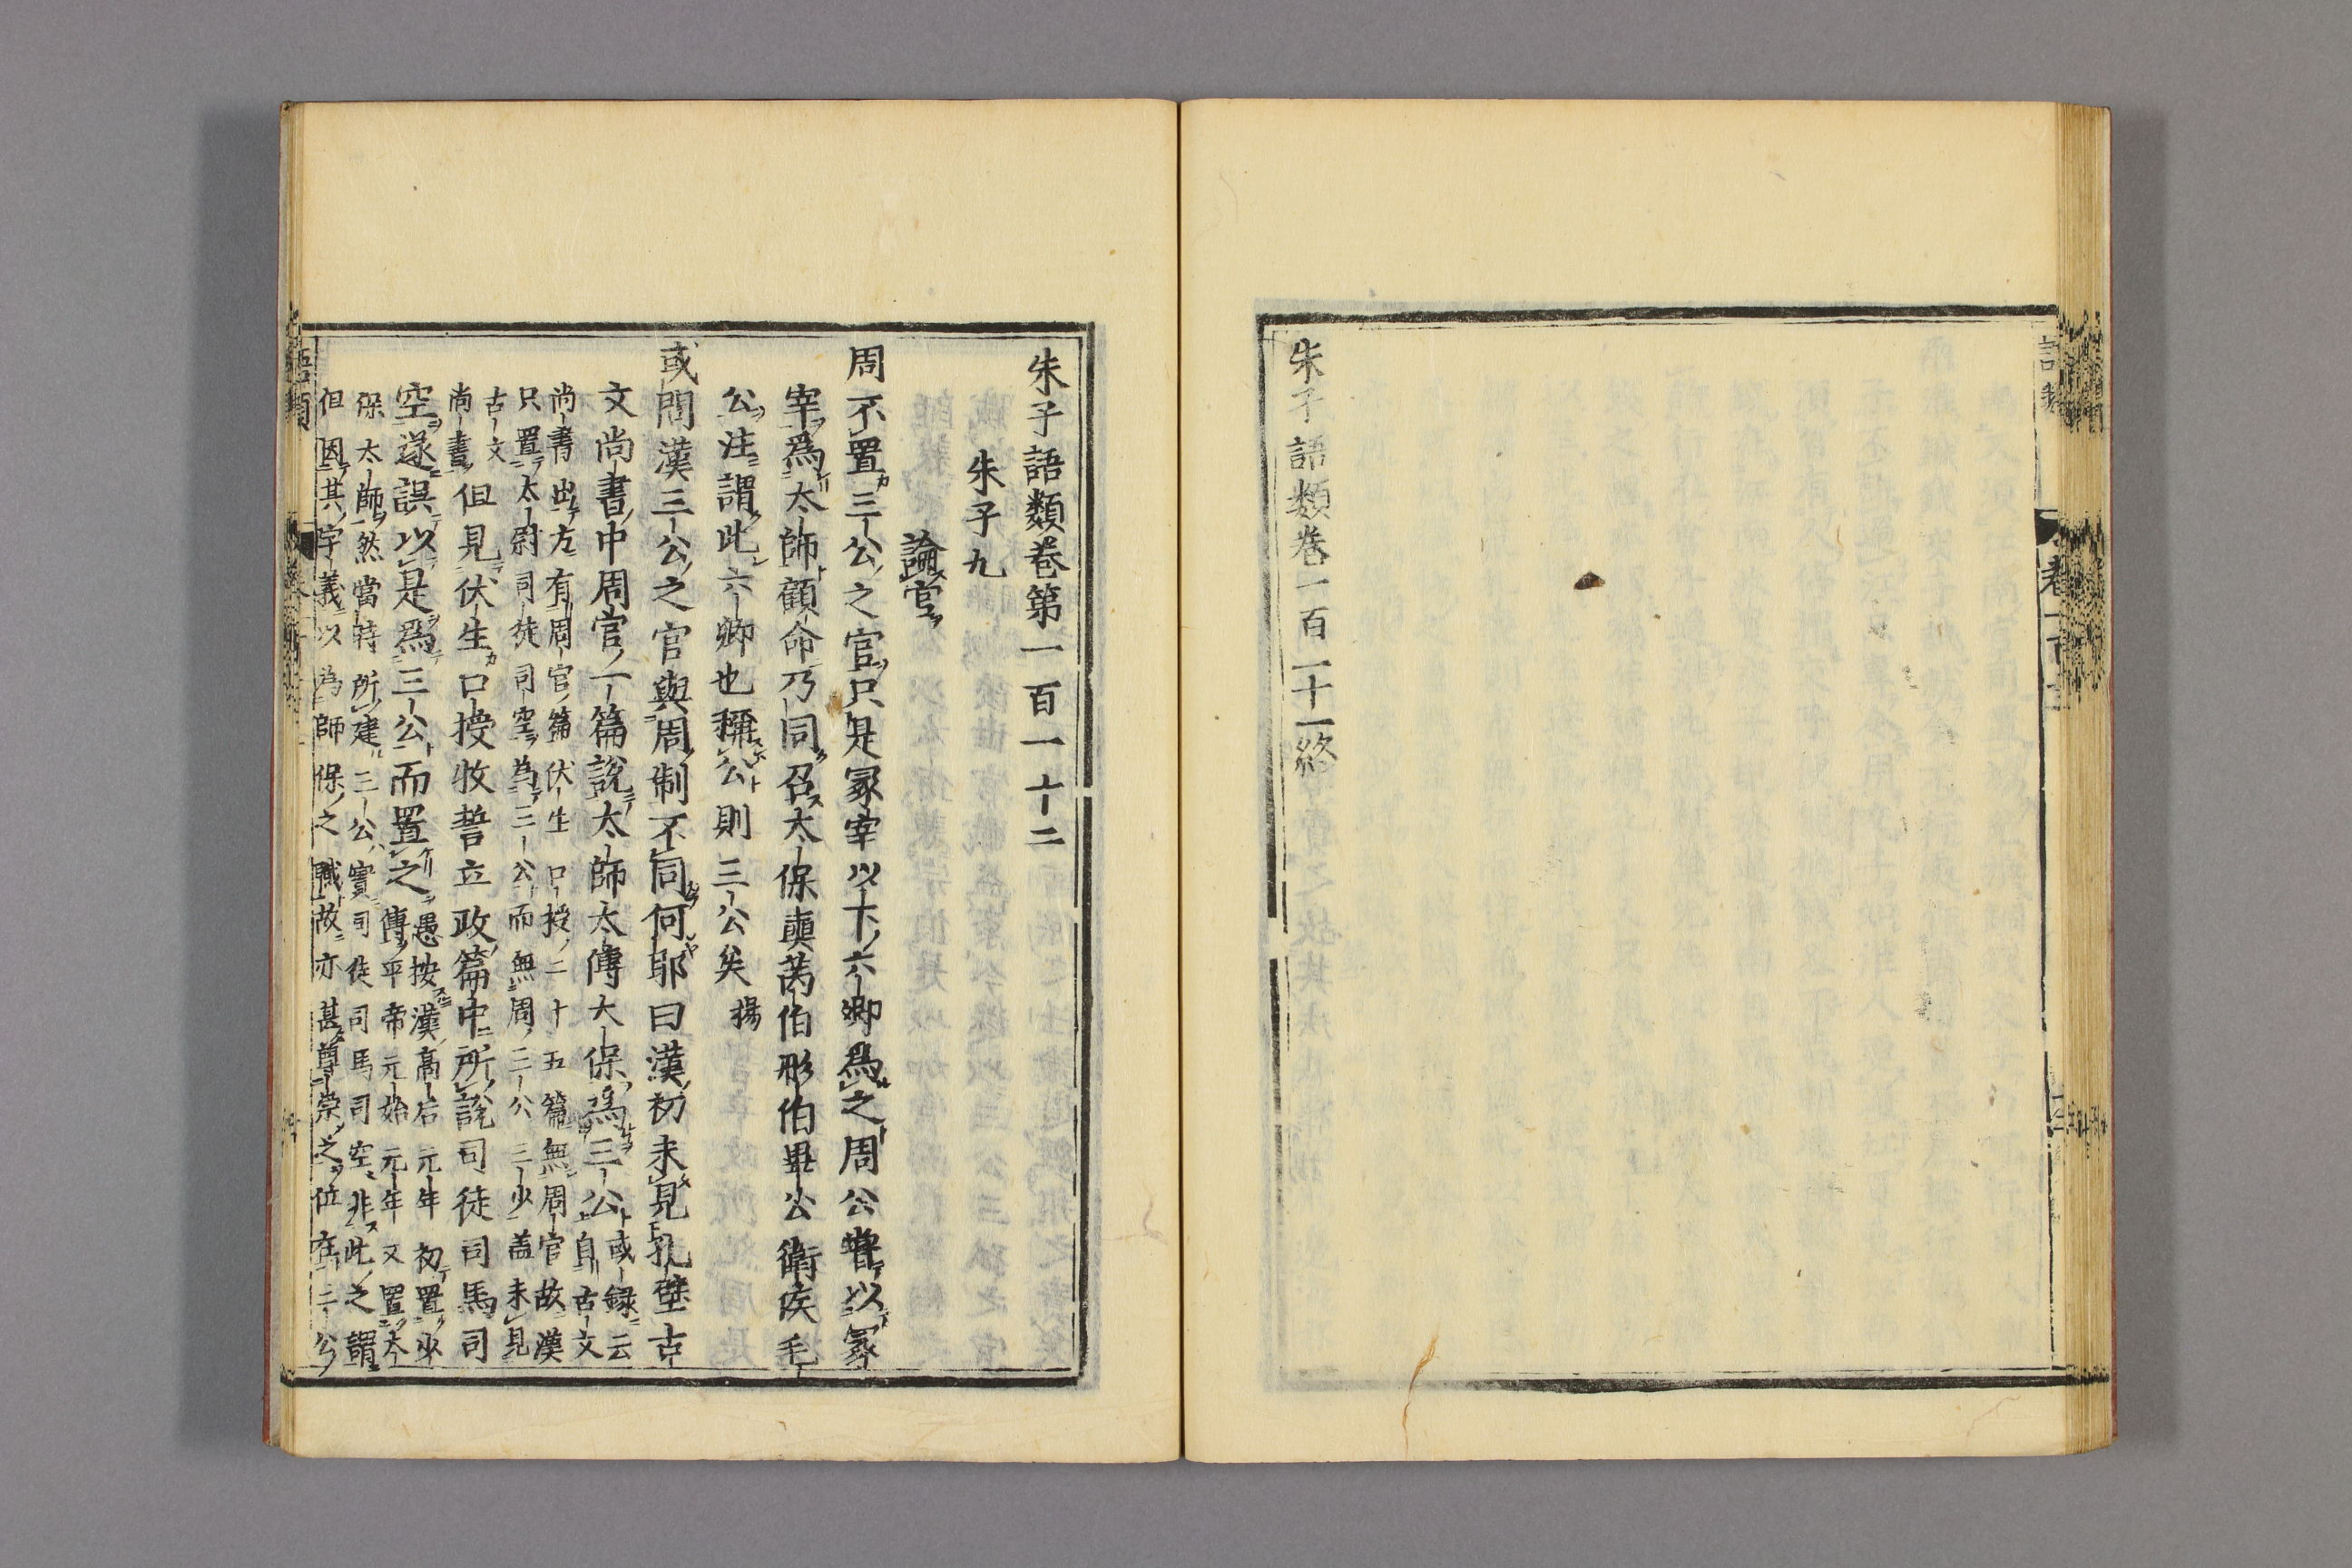 朱子語類卷一百一十一終
朱子語類卷第一百一十二
朱子九
論官
周不置三公之官只是冢宰以下六卿爲之周公甞以冢
宰爲太師顧命乃同召太保奭芮伯彤伯畢公衛侯毛
公注謂此六卿也稱公則三公矣揚
或問漢三公之官與周制不同何耶曰漢初未見孔壁古
文尚書中周官一篇說太師太傅大保爲三公
或録云
自古文
尚書出方有周官篇伏生口授二十五篇無周官故漢
只置太尉司徒司空為三公而無周三公三少盖未見
古文
尚書
但見伏生口授牧誓立政篇中所說司徒司馬司
空遂誤以是爲三公而置之
愚按漢高后元年初置少
傅平帝元始元年又置太
保太師然當時所建三公實司徒司馬司空非此之謂
但因其字義以為師保之職故亦甚尊崇之位在三公